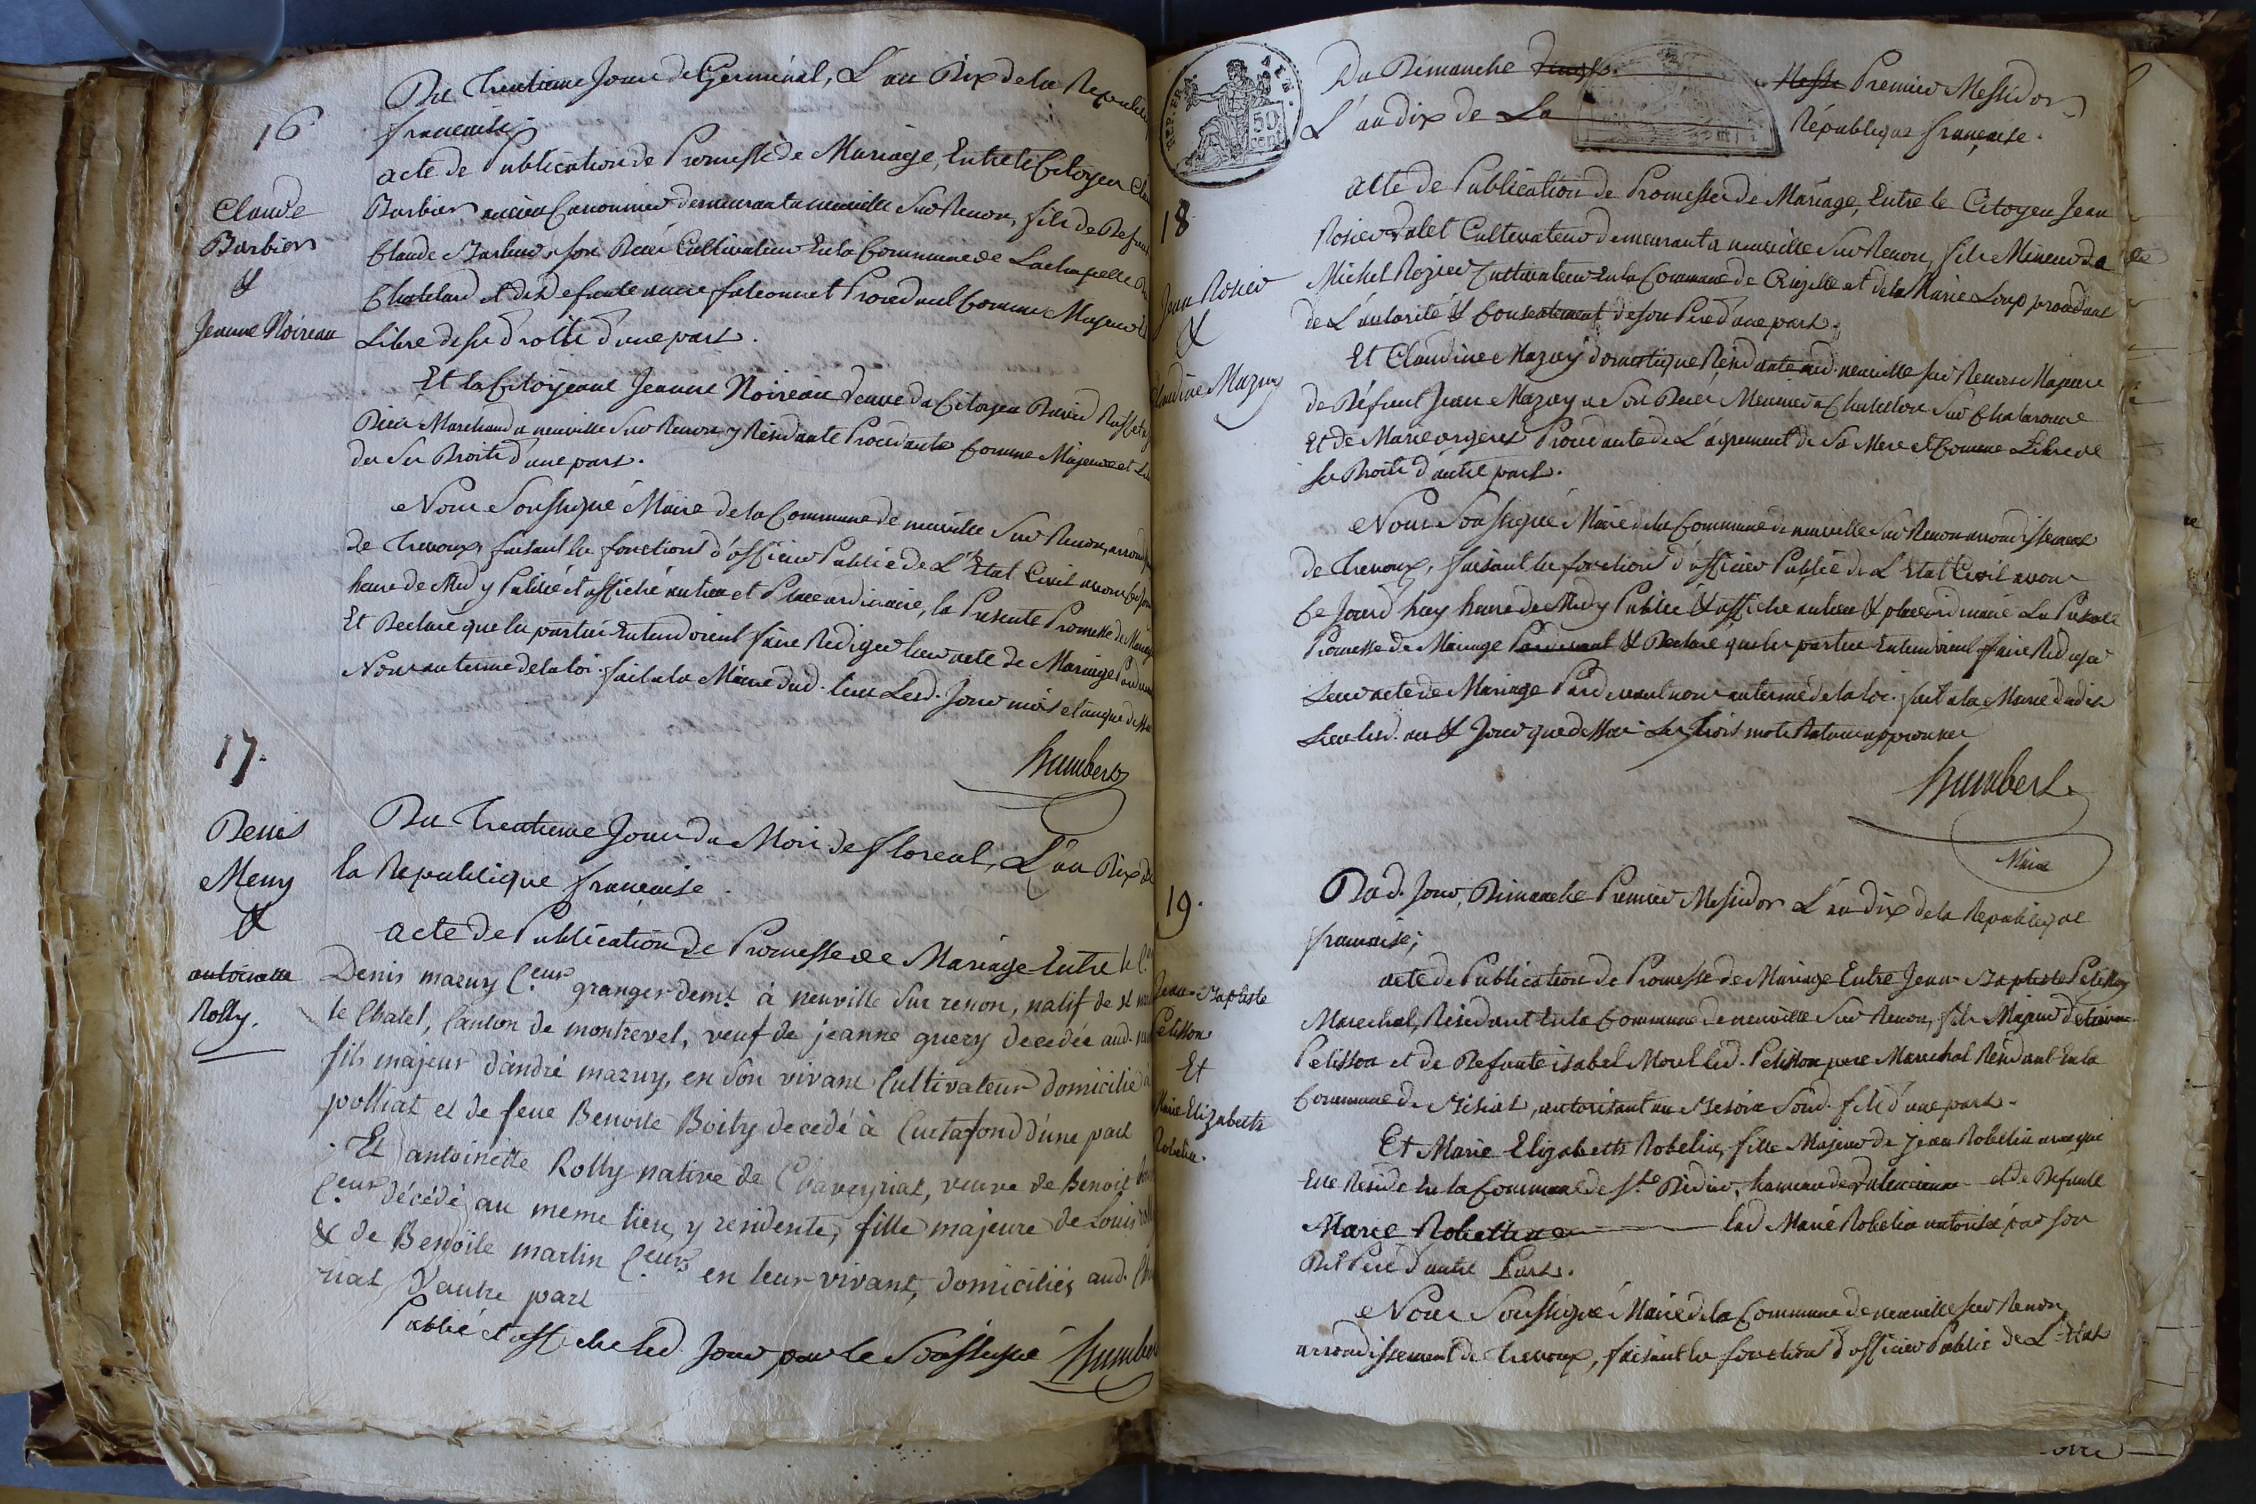 16
Claude
Barbier
&
Jeanne Noireau
Du Trentieme Jour de Germinal, L'an Dix de la Republique
francaise.
acte de Publication de Promesse de Mariage, Entre le Citoyen
Barbier ancien Canonnier demeurant a neuville Sur Renon, fils de Defunt
Claude Barbier Son Pere Cultivateur En la Commune de Lachapelle du
Chatelard et de Defunte anne falconnet Procedant Comme Majeur
Libre de ses droits d'une part.
Et la Citoyenne Jeanne Noireau Veuve du Citoyen
Marchand a neuville Sur Renon y Résidante Procedante Comme Majeure et
de Ses Droits d'une part.
Nous Soussigné Maire de la Commune de neuville Sur Renon,
de Trevoux, faisant les fonctions d'officier Public de L'Etat Civil avons
heure de Midy Publié et affiché au lieu et Place ordinaire, la Présente Promesse de
Et Declaré que les parties Entendoient faire Rediger leur acte de Mariage
Nous au terme de la loi. fait a la Mairie dud. lieu Lesd. Jour mois et an que
humbert
17.
Denis
Meny
&
antoinette
Rolly.
Du Trentieme Jour du Mois de floreal, L'an Dix de
la Republique francaise.
acte de Publication de Promesse de Mariage Entre le
Denis mazuy C.eur granger dem.t à neuville Sur renon, natif de st
le Chatel, Canton de montrevel, veuf de jeanne guery decedée aud.
fils majeur d'andré mazuy, en Son vivant Cultivateur domicilié à
polliat et de feue Benoite Boity decedé à Curtafond d'une part
Et antoinette Rolly native de Chaveyriat, veuve de Benoit
C.eur décédé au meme lieu, y residente, fille majeure de Louis
& de Benoite marlin C.eurs en leur vivant, domiciliés aud.
riat d'autre part
Publié et affiché led. Jour par le Soussigné humbert
REP. FRA.
50
cen
Du Dimanche Premier Messidor
L'an dix de La République française.
18
Jean Rosier
&
Claudine Mazuy
acte de Publication de Promesse de Mariage, Entre le Citoyen Jean
Rosier Valet Cultivateur demeurant a neuville Sur Renon, fils Mineur de
Michel Rozier Cultivateur En la Commune de Cruzille et de la Marie Loup procedant
de L'autorité & Consentement de son Pere d'une part.
Et Claudine Mazuy domestique Résidante aud. neuville sur Renon Majeure
de Défunt Jean Mazuy a Son Decès Meunier a Chatillon Sur Chalaronne
Et de Marie orgeret Procedante de L'agrement de Sa Mere et Comme Libre de
Ses Droits d'autre part.
Nous Soussigné Maire de la Commune de neuville Sur Renon arrondissement
de Trevoux, faisant les fonctions d'officier Public de L'Etat Civil avons
Ce Jourd'huy heure de Midy Publié & affiché au lieu & place ordinaire La Présente
Promesse de Mariage Pardevant & Declaré que les parties Entendoient faire Rediger
Leur acte de Mariage Pardevant nous au terme de la loi. fait a la Mairie dudit
Lieu lesd. an & Jour que dessus Les Trois mots Raturés approuvés
humbert
Maire
19.
Jean Baptiste
Pelisson
Et
Marie Elizabeth
Robelin.
Dud. Jour, Dimanche Premier Messidor L'an dix de la Republique
francaise;
acte de Publication de Promesse de Mariage Entre Jean Baptiste Pelisson
Marechal, Résidant En la Commune de neuville Sur Renon, fils Majeur de
Pelisson et de Defunte isabel Morel led. Pelisson pere Marechal Résidant En la
Commune de Biziat, autorisant au Besoin Sond. fils d'une part.
Et Marie Elizabeth Robelin, fille Majeur de Jean Robelin avec qui
Elle Reside En la Commune de S.t Didier, hameau de Valenciennes et de Defunte
Marie lad Marie Robelin autorisée par son
Dit Pere d'autre Part.
Nous Soussigné Maire de la Commune de neuville sur Renon
arrondissement de Trevoux, faisant les fonctions d'officier Public de L'Etat